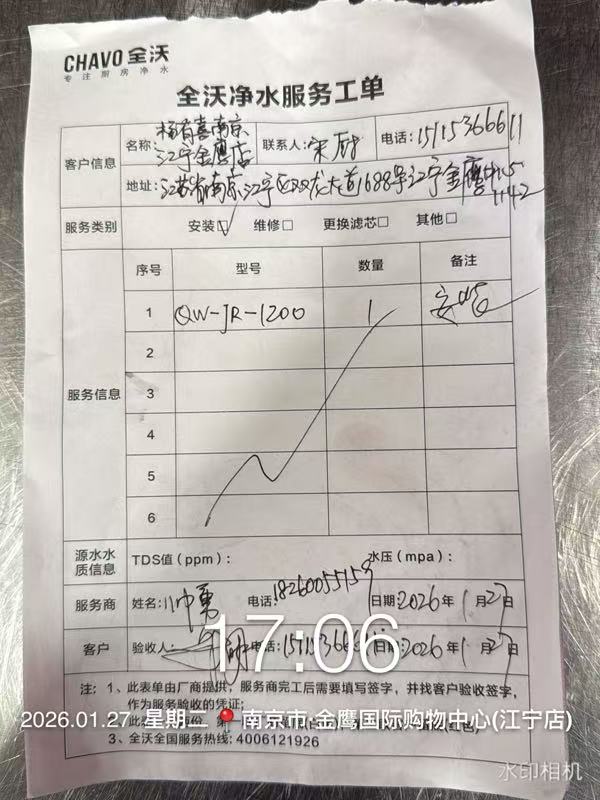 CHAVO 全沃
专注厨房净水
全沃净水服务工单
客户信息
名称: 杨有喜南京江宁金鹰店
联系人: 宋厨
电话: 15115366611
地址: 江苏省南京江宁区双龙大道1688号江宁金鹰
服务类别
安装☑ 维修□ 更换滤芯□ 其他□
服务信息
序号 型号 数量 备注
1 QW-JR-1200 1 安装
2
3
4
5
6
源水水质信息
TDS值(ppm): 水压(mpa):
服务商 姓名: 帅勇 电话: 18260055159 日期: 2026年1月27日
客户 验收人: 电话: 日期: 2026年1月27日
17:06
注: 1、此表单由厂商提供,服务商完工后需要填写签字,并找客户验收签字,
作为服务验收的凭证;
2026.01.27 星期二 📍南京市·金鹰国际购物中心(江宁店)
3、全沃全国服务热线: 4006121926
水印相机